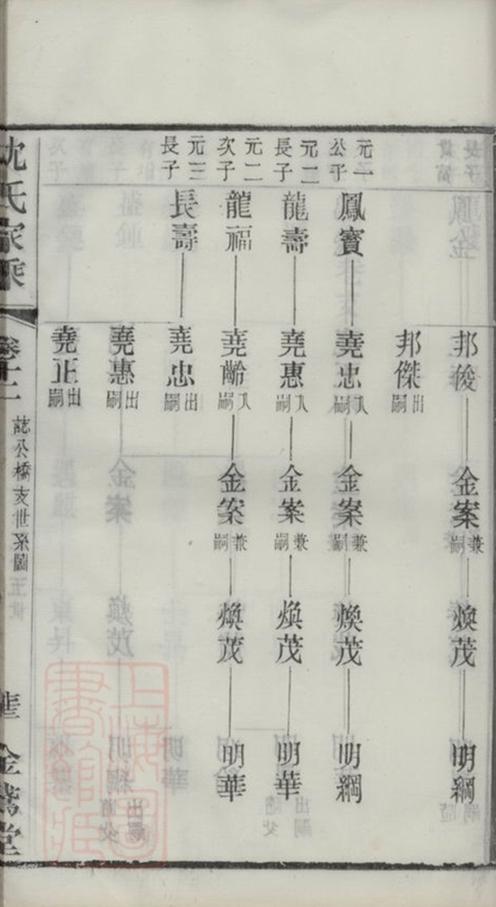 邦俊 金案兼嗣 煥茂 明綱
邦傑出嗣
元一公子 鳳寳 堯忠入嗣 金案兼嗣 煥茂 明綱
元二長子 龍壽 堯惠入嗣 金案兼嗣 煥茂 明華
元二次子 龍福 堯齡入嗣 金案兼嗣 煥茂 明華
元三長子 長壽 堯忠出嗣
堯惠出嗣
堯正出嗣
沈氏家乘 卷十二 誌公橋支世系圖